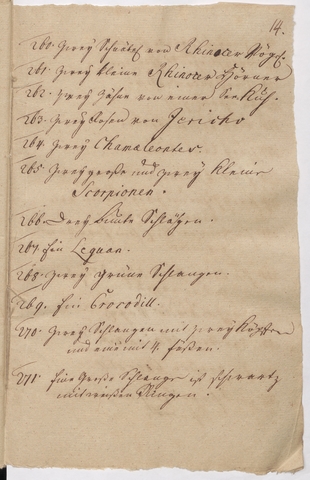 14.
260. Zwey Schnäbel von Rhinocer Vögel.
261. Zwey kleine Rhinocer Hörner
262. Zwey Zähne von einer See Kuh.
263. Zwey Rosen von Jericho
264. Zwey Chamaeleontes.
265. Zwey große und Zwey kleine
Scorpionen.
266. Drey bunte Schlangen.
267. Ein Leguan.
268. Zwey grüne Schlangen.
269. Ein Crocodill.
270. Zwey Schlangen mit zwey Köpffen
und eine mit 4 füßen.
271. Eine Große Schlange ist schwartz
mit weißen Ringen.